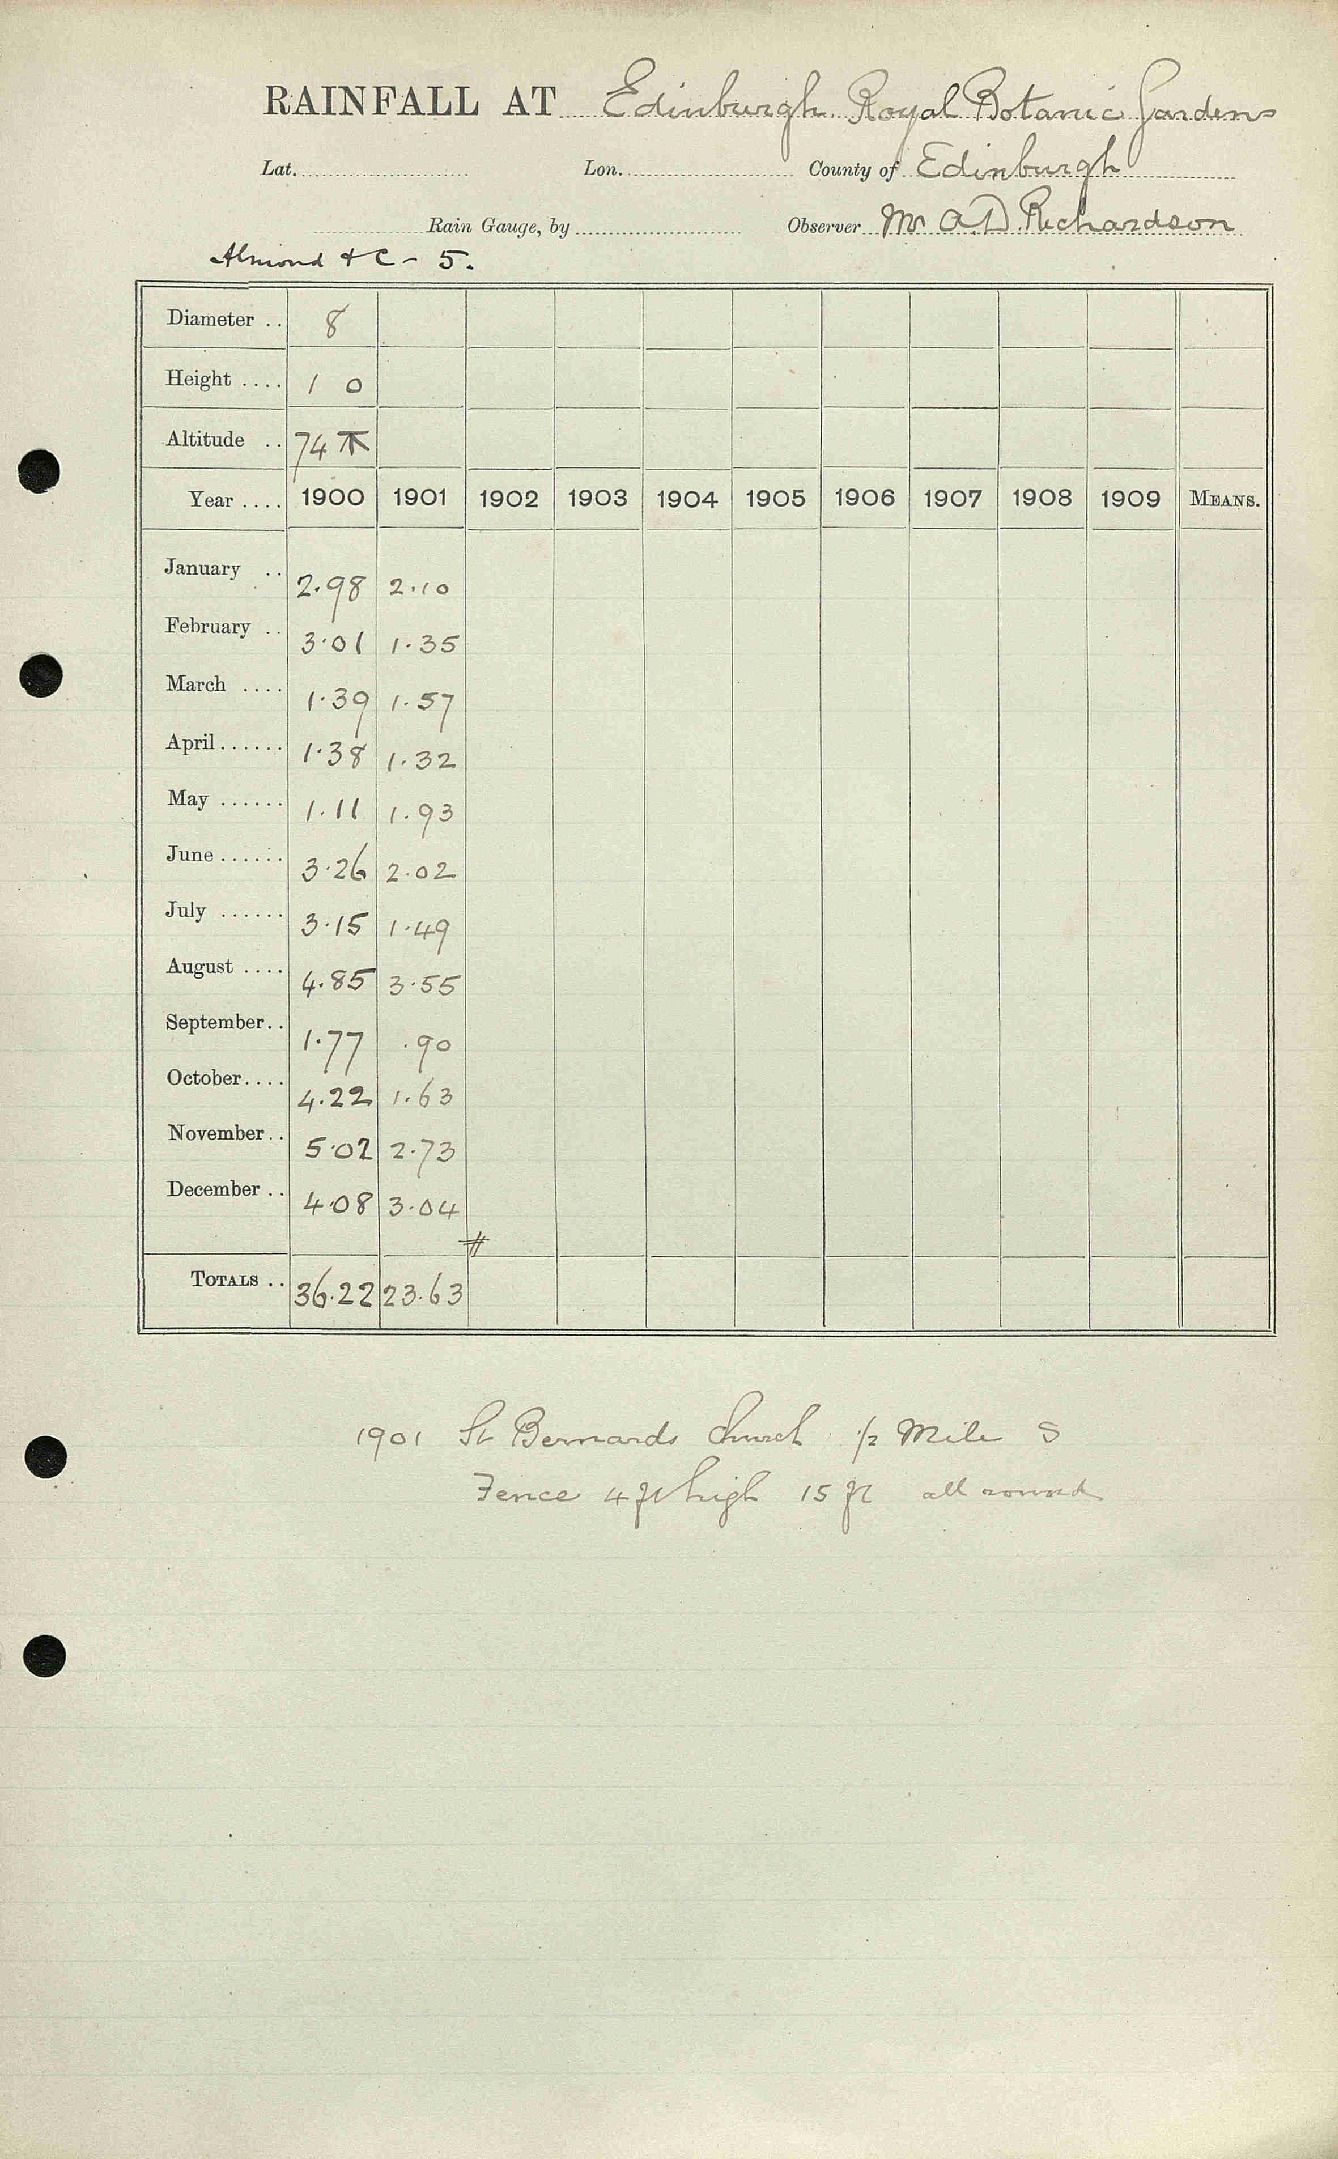 RAINFALL AT Edinburgh Royal Botanic Gardens
Lat. Lon. County of Edinburgh
Rain Gauge, by Observer Mr A.D. Richardson
Almond & C - 5.
Diameter .. 8
Height .... 1 0
Altitude .. 74
Year .... 1900 1901 1902 1903 1904 1905 1906 1907 1908 1909 MEANS.
January .. 2.98 2.10
February .. 3.01 1.35
March .... 1.39 1.57
April ...... 1.38 1.32
May ...... 1.11 1.93
June ...... 3.26 2.02
July ...... 3.15 1.49
August .... 4.85 3.55
September.. 1.77 .90
October.... 4.22 1.63
November.. 5.02 2.73
December .. 4.08 3.04
#
TOTALS .. 36.22 23.63
1901 St Bernards Church 1/2 Mile S
Fence 4 ft high 15 ft all round